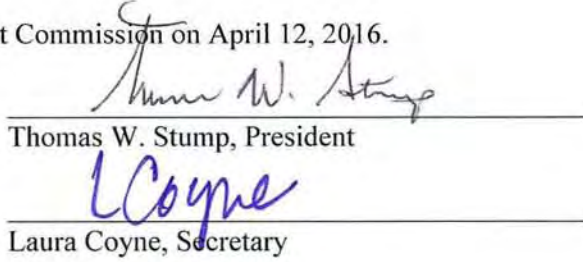 t Commission on April 12, 2016.
Thomas W. Stump
Thomas W. Stump, President
L Coyne
Laura Coyne, Secretary